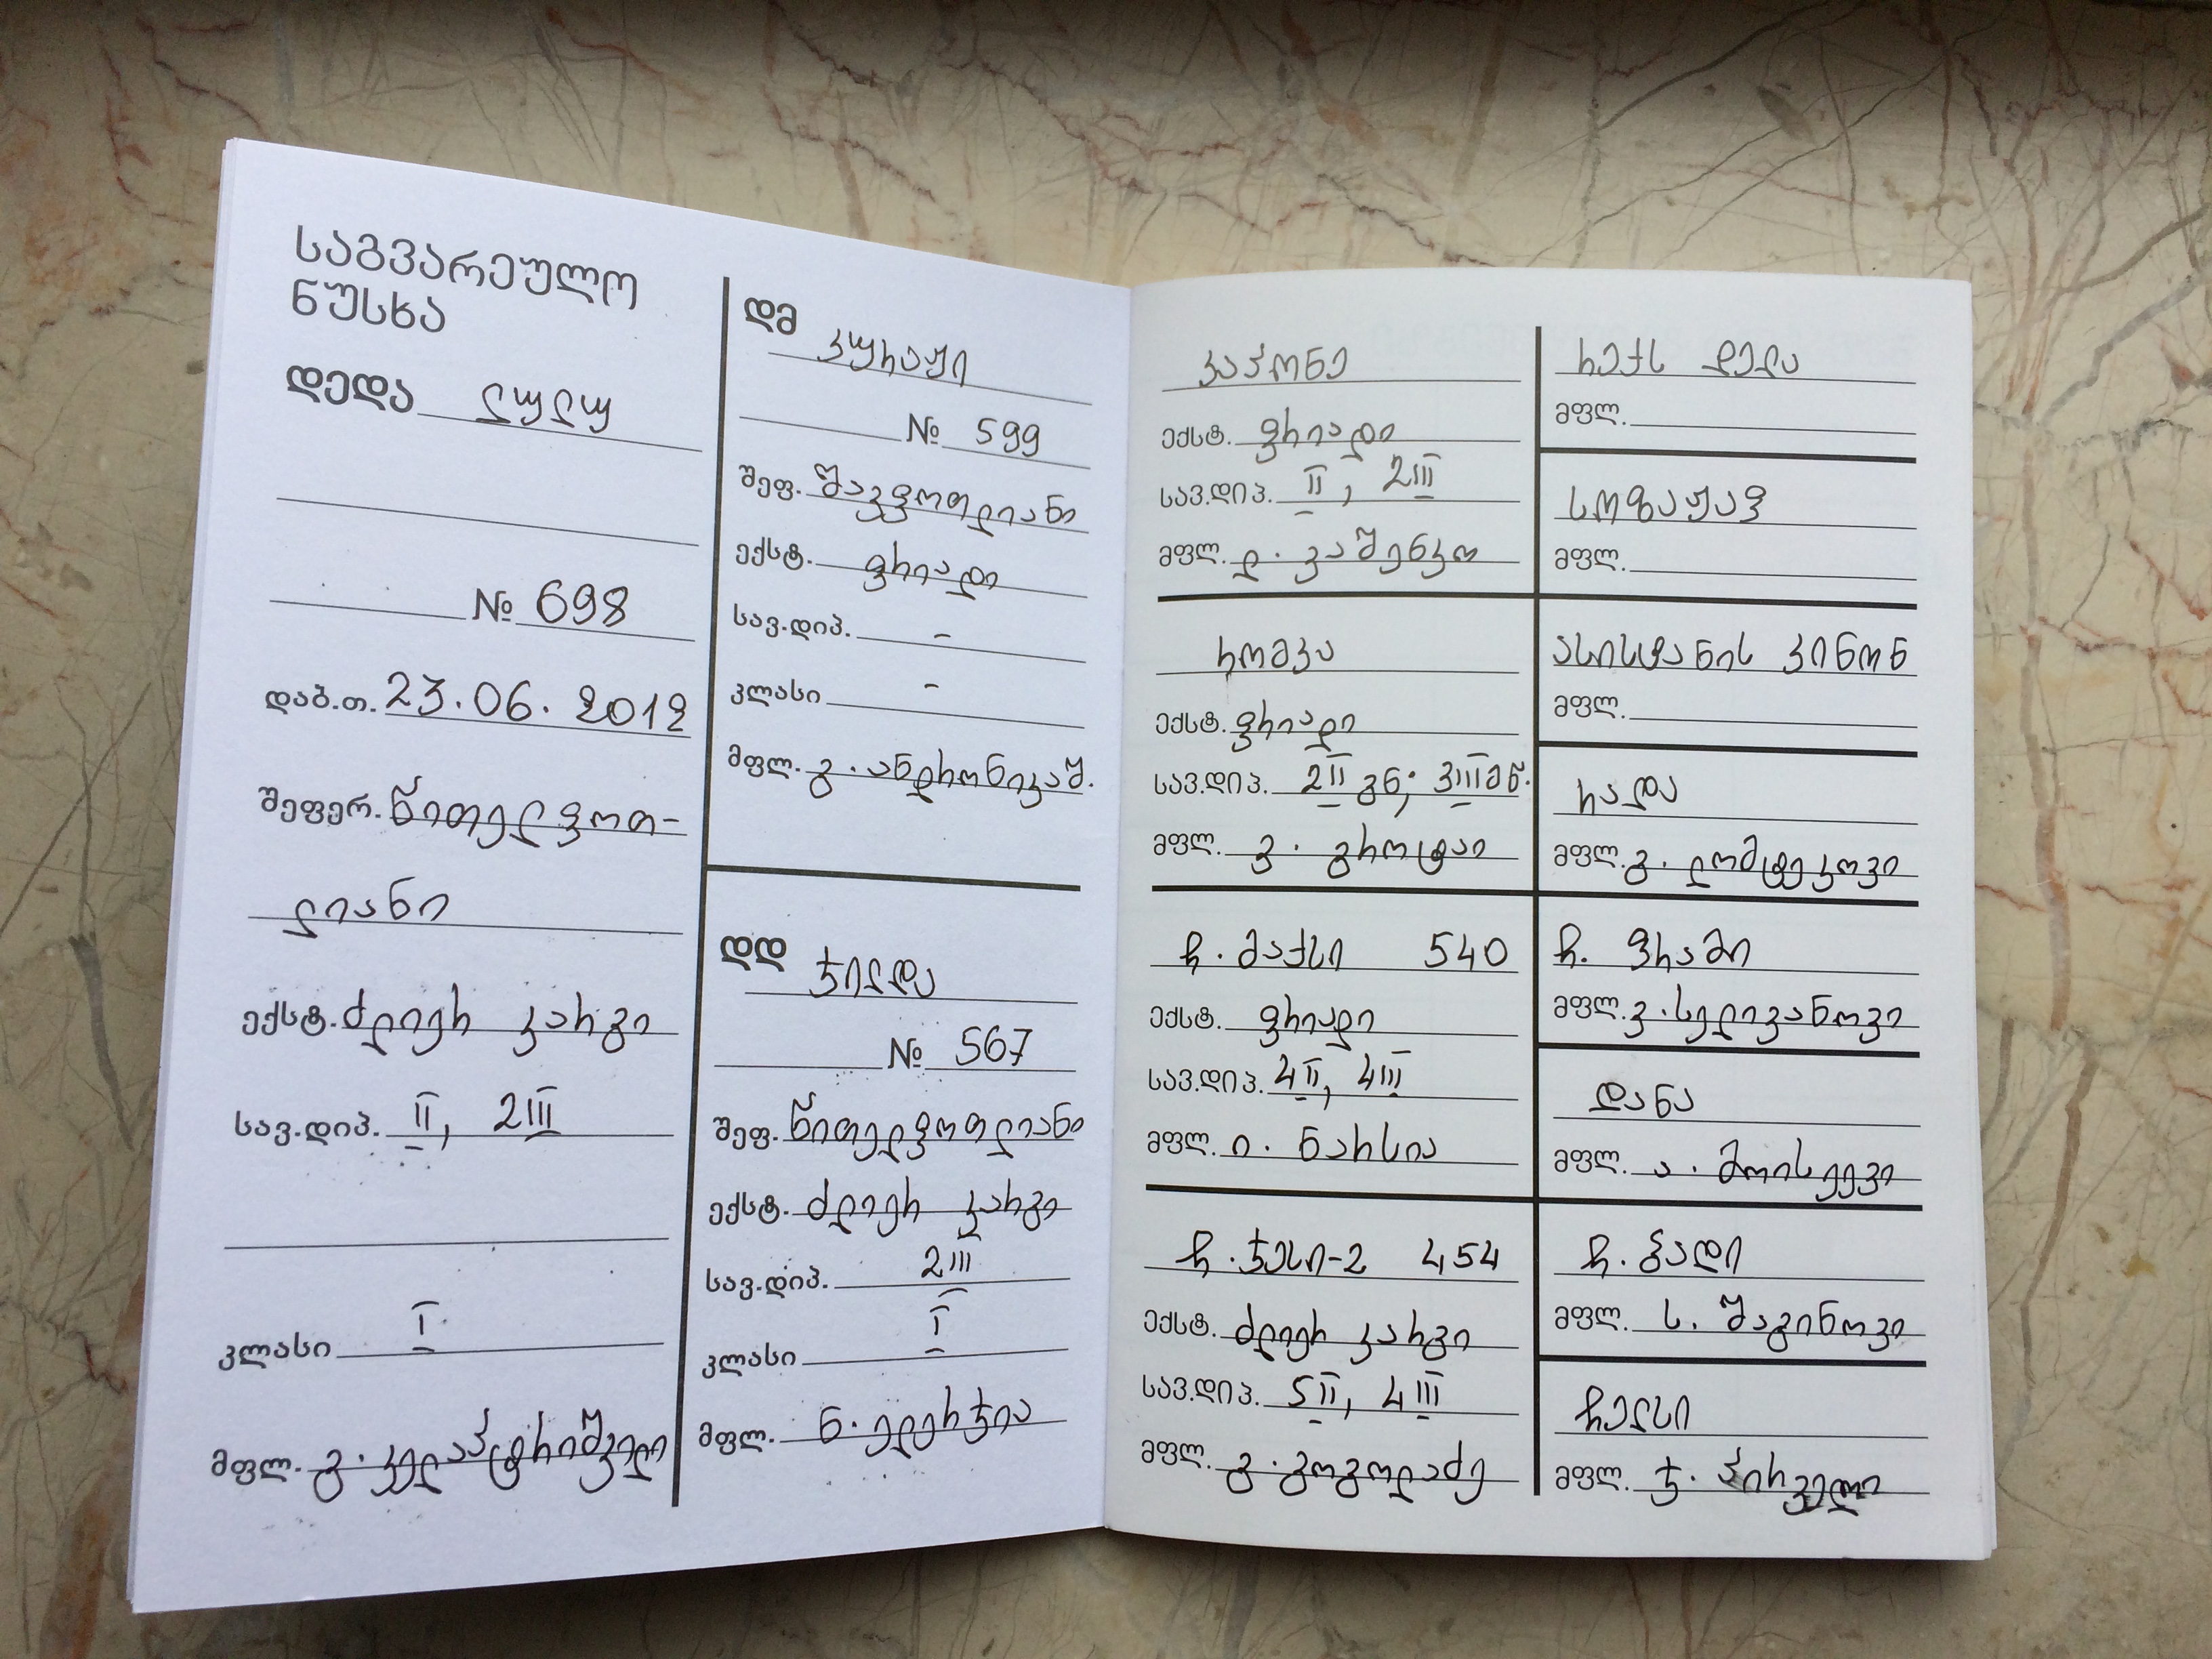 საგვარეულო
ნუსხა
დედა ლულუ
№ 698
დაბ.თ. 23.06.2012
შეფერ. წითელფოთ-
ლიანი
ექსტ. ძლიერ კარგი
სავ.დიპ. II, 2III
კლასი I
მფლ. გ. კელაპტრიშვილი
დმ კურაჟი
№ 599
შეფ. შავფოთლიანი
ექსტ. ფრიადი
სავ.დიპ. -
კლასი -
მფლ. გ. ანდრონიკაშ.
დდ ჯილდა
№ 567
შეფ. წითელფოთლიანი
ექსტ. ძლიერ კარგი
სავ.დიპ. 2III
კლასი I
მფლ. ნ. ელერჯია
კაპონე
ექსტ. ფრიადი
სავ.დიპ. II, 2III
მფლ. ლ. ვაშენკო
რომკა
ექსტ. ფრიადი
სავ.დიპ. 2II გნ; 3III მწ.
მფლ. ვ. გროტაი
ჩ. მაქსი 540
ექსტ. ფრიადი
სავ.დიპ. 4II, 4III
მფლ. ი. ნარსია
ჩ. ჯესი-2 454
ექსტ. ძლიერ კარგი
სავ.დიპ. 5II, 4III
მფლ. გ. გოგოლაძე
რექს დელა
მფლ.
სოფაჟაფ
მფლ.
ასისტანის კინონ
მფლ.
რადა
მფლ. გ. ლომტეკოვი
ჩ. ფრამი
მფლ. ვ. სელივანოვი
დანა
მფლ. ა. მოისეევი
ჩ. გადი
მფლ. ს. შაგინოვი
ჩელსი
მფლ. ჯ. პირველი